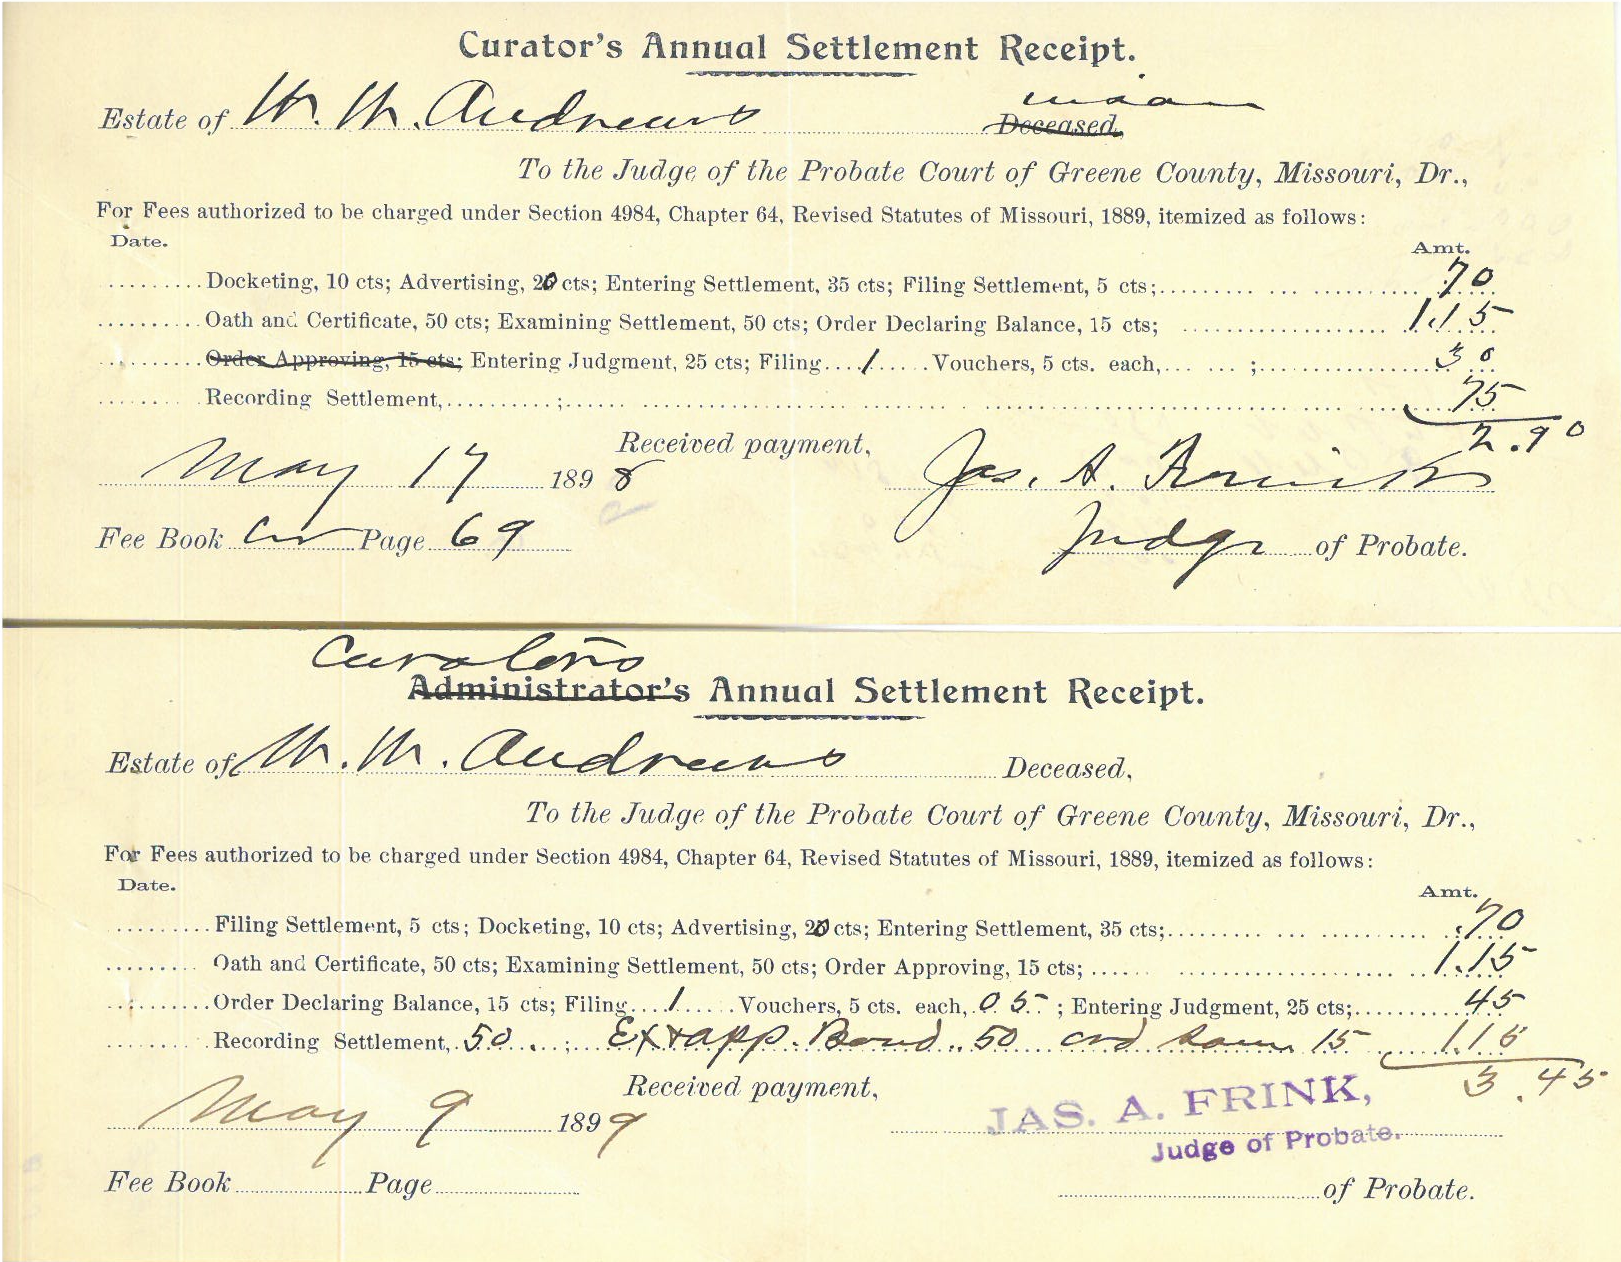 Curator's Annual Settlement Receipt.
Estate of W. W. Andrews insane
Deceased,
To the Judge of the Probate Court of Greene County, Missouri, Dr.,
For Fees authorized to be charged under Section 4984, Chapter 64, Revised Statutes of Missouri, 1889, itemized as follows:
Date. Amt.
Docketing, 10 cts; Advertising, 20 cts; Entering Settlement, 35 cts; Filing Settlement, 5 cts; 70
Oath and Certificate, 50 cts; Examining Settlement, 50 cts; Order Declaring Balance, 15 cts; 1.15
Order Approving, 15 cts; Entering Judgment, 25 cts; Filing 1 Vouchers, 5 cts. each, ; 30
Recording Settlement, ; 75
2.90
Received payment,
May 17 1898 Jas. A. Frink
Fee Book Cur Page 69 Judge of Probate.
Curator's
Administrator's Annual Settlement Receipt.
Estate of W. W. Andrews Deceased,
To the Judge of the Probate Court of Greene County, Missouri, Dr.,
For Fees authorized to be charged under Section 4984, Chapter 64, Revised Statutes of Missouri, 1889, itemized as follows:
Date. Amt.
Filing Settlement, 5 cts; Docketing, 10 cts; Advertising, 20 cts; Entering Settlement, 35 cts; .70
Oath and Certificate, 50 cts; Examining Settlement, 50 cts; Order Approving, 15 cts; 1.15
Order Declaring Balance, 15 cts; Filing 1 Vouchers, 5 cts. each, 05 ; Entering Judgment, 25 cts; 45
Recording Settlement, 50 ; Ex & app. Bond 50 ord same 15 1.15
3.45
Received payment,
May 9 1899 JAS. A. FRINK,
Judge of Probate.
Fee Book Page of Probate.